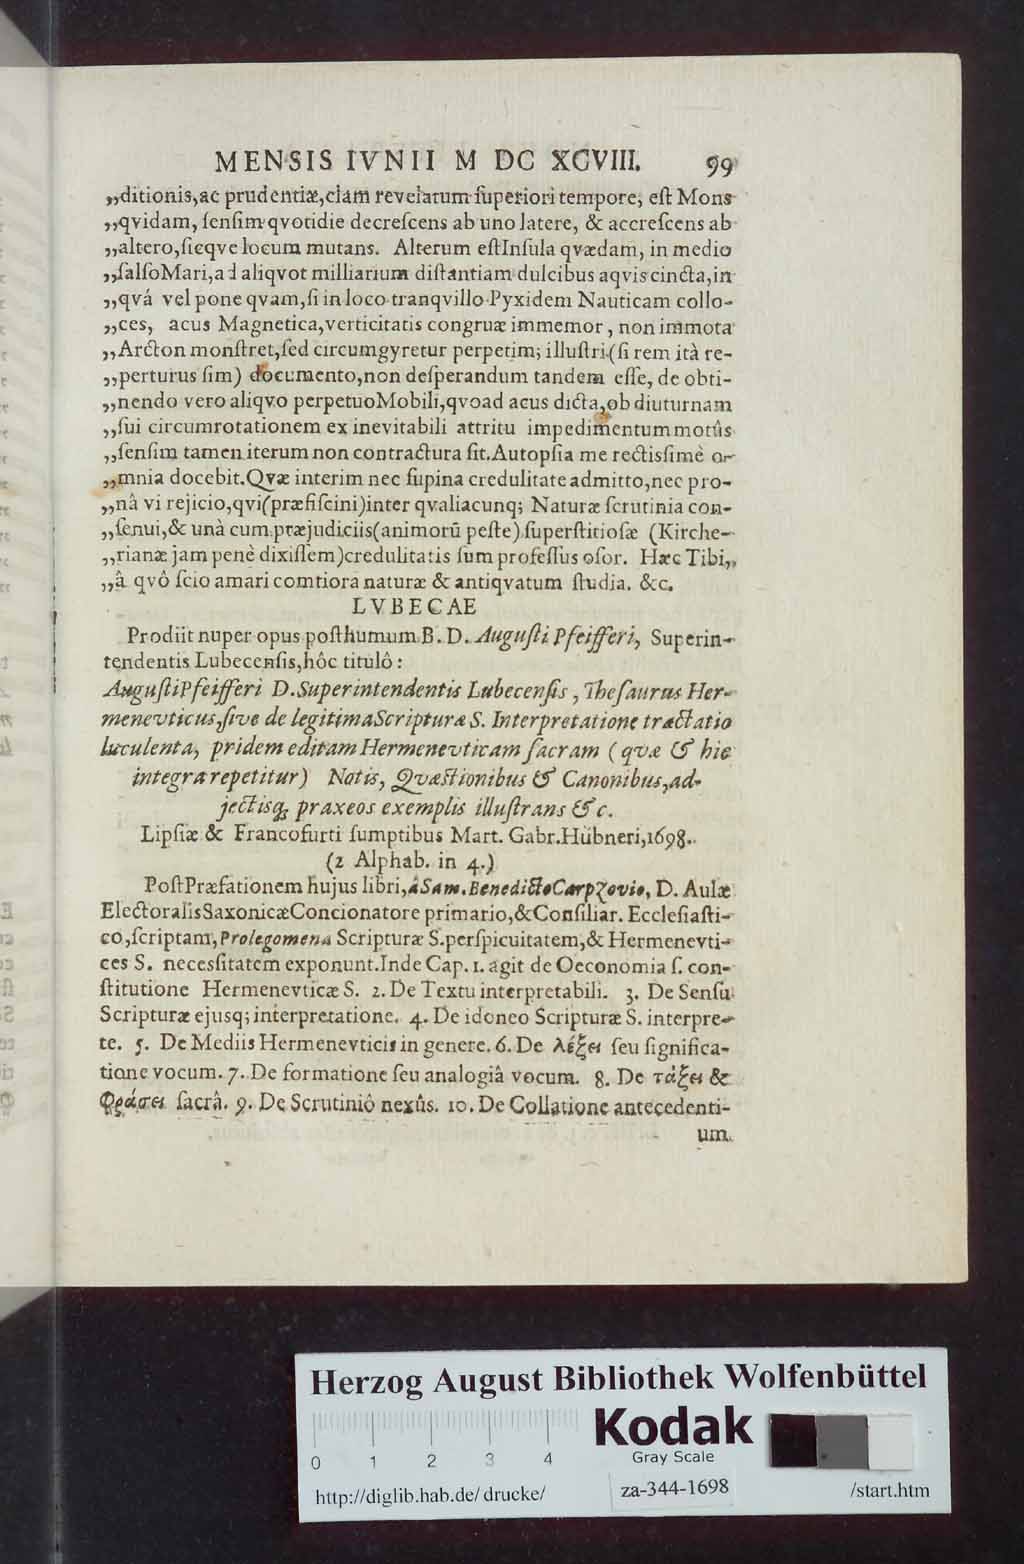 MENSIS IVNII M DC XCVIII. 99
„ditionis,ac prudentiæ,clám revelatum ſuperiori tempore, eſt Mons
„qvidam, ſenſim qvotidie decreſcens ab uno latere, & accreſcens ab
„altero,ſicqve locum mutans. Alterum eſt Inſula qvædam, in medio
„ſalſo Mari,ad aliqvot milliarium diſtantiam dulcibus aqvis cincta,in
„qvá vel pone qvam,ſi in loco tranqvillo Pyxidem Nauticam collo-
„ces, acus Magnetica,verticitatis congruæ immemor, non immota
„Arcton monſtret,ſed circumgyretur perpetim; illuſtri (ſi rem ità re-
„perturus ſim) documento,non deſperandum tandem eſſe, de obti-
„nendo vero aliqvo perpetuo Mobili,qvoad acus dicta,ob diuturnam
„ſui circumrotationem ex inevitabili attritu impedimentum motûs
„ſenſim tamen iterum non contractura ſit. Autopſia me rectiſſimè o-
„mnia docebit. Qvæ interim nec ſupina credulitate admitto,nec pro-
„nâ vi rejicio,qvi(præfiſcini)inter qvaliacunq; Naturæ ſcrutinia con-
„ſenui,& unà cum præjudiciis(animorū peſte) ſuperſtitioſæ (Kirche-
„rianæ jam penè dixiſſem)credulitatis ſum profeſſus oſor. Hæc Tibi,„
„â qvô ſcio amari comtiora naturæ & antiqvatum ſtudia. &c.
LVBECAE
Prodiit nuper opus poſthumum B. D. Auguſti Pfeifferi, Superin-
tendentis Lubecenſis,hôc titulô:
Auguſti Pfeifferi D. Superintendentis Lubecenſis, Theſaurus Her-
menevticus,ſive de legitima Scripturæ S. Interpretatione tractatio
luculenta, pridem editam Hermenevticam ſacram ( qvæ & hic
integra repetitur) Notis, Qvæſtionibus & Canonibus,ad-
jectisq; praxeos exemplis illuſtrans &c.
Lipſiæ & Francofurti ſumptibus Mart. Gabr. Hübneri,1698.
(2 Alphab. in 4.)
Poſt Præfationem hujus libri,à Sam. Benedicto Carpzovio, D. Aulæ
Electoralis Saxonicæ Concionatore primario,& Conſiliar. Eccleſiaſti-
co,ſcriptam, Prolegomena Scripturæ S. perſpicuitatem,& Hermenevti-
ces S. neceſſitatem exponunt. Inde Cap. 1. agit de Oeconomia ſ. con-
ſtitutione Hermenevticæ S. 2. De Textu interpretabili. 3. De Senſu
Scripturæ ejusq; interpretatione. 4. De idoneo Scripturæ S. interpre-
te. 5. De Mediis Hermenevticis in genere. 6. De λέξει ſeu ſignifica-
tione vocum. 7. De formatione ſeu analogiâ vocum. 8. De τάξει &
φράσει ſacrâ. 9. De Scrutiniô nexûs. 10. De Collatione antecedenti-
um
Herzog August Bibliothek Wolfenbüttel
0 1 2 3 4
Kodak
Gray Scale
http://diglib.hab.de/ drucke/ za-344-1698 /start.htm